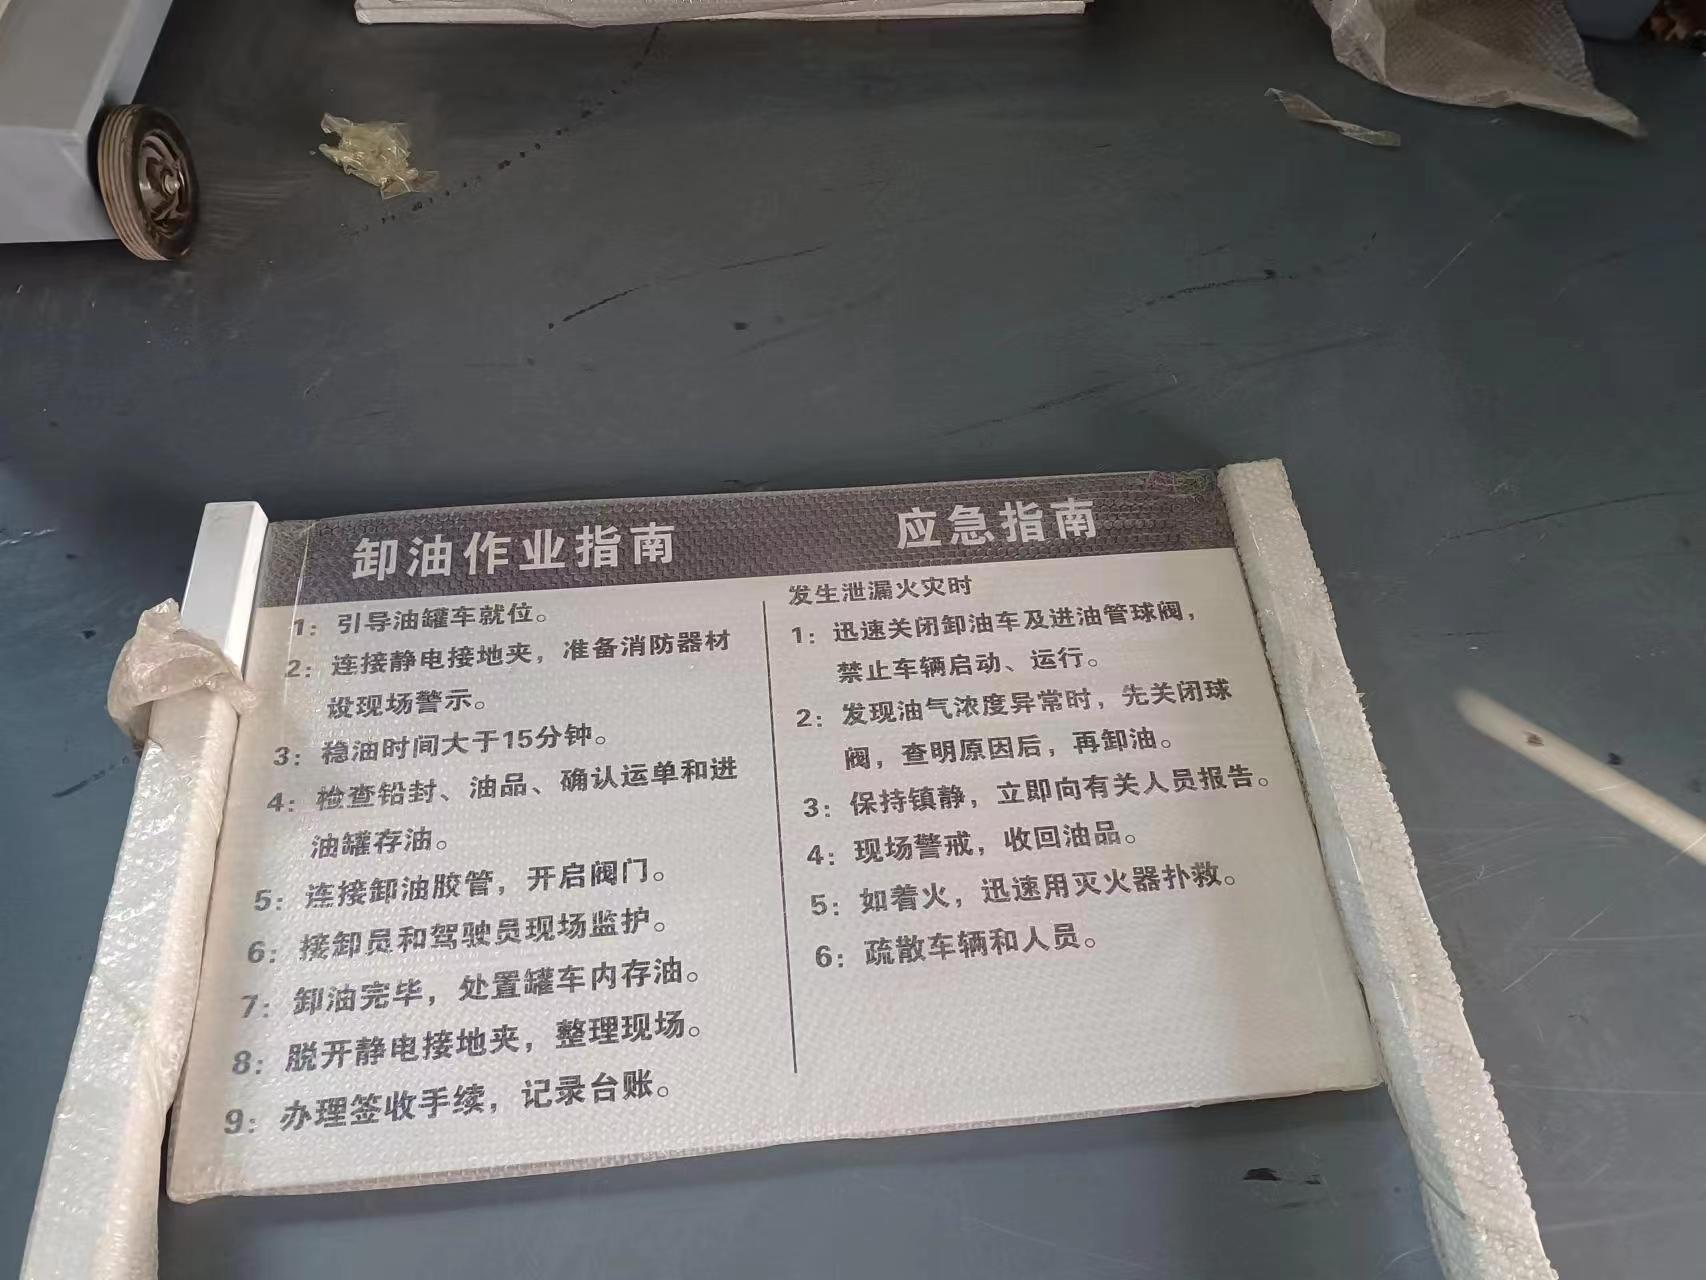 卸油作业指南
1：引导油罐车就位。
2：连接静电接地夹，准备消防器材
设现场警示。
3：稳油时间大于15分钟。
4：检查铅封、油品、确认运单和进
油罐存油。
5：连接卸油胶管，开启阀门。
6：接卸员和驾驶员现场监护。
7：卸油完毕，处置罐车内存油。
8：脱开静电接地夹，整理现场。
9：办理签收手续，记录台账。
应急指南
发生泄漏火灾时
1：迅速关闭卸油车及进油管球阀，
禁止车辆启动、运行。
2：发现油气浓度异常时，先关闭球
阀，查明原因后，再卸油。
3：保持镇静，立即向有关人员报告。
4：现场警戒，收回油品。
5：如着火，迅速用灭火器扑救。
6：疏散车辆和人员。